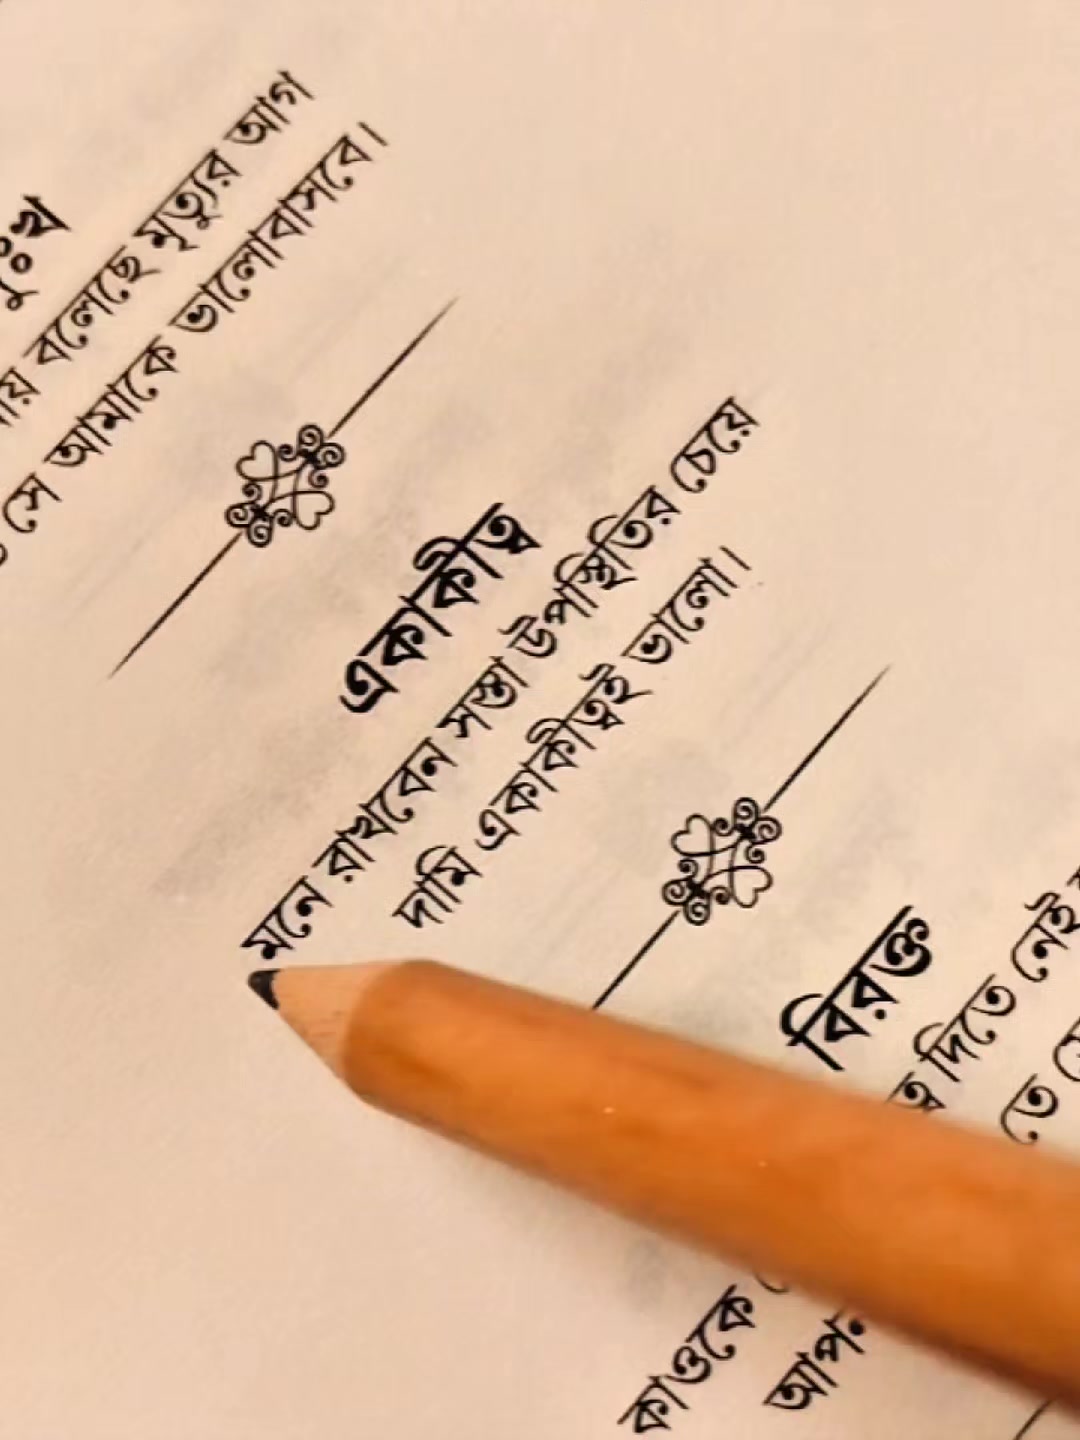 দুঃখ
বলেছে মৃত্যুর আগ
সে আমাকে ভালোবাসবে।
একাকীত্ব
মনে রাখবেন সস্তা উপস্থিতির চেয়ে
দামি একাকীত্বই ভালো।
বিরক্ত
কাওকে দিতে নেই
তে